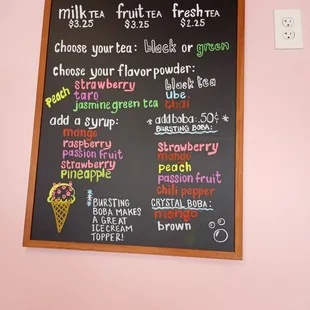 milk TEA fruit TEA fresh TEA
$3.25 $3.25 $2.25
choose your tea: black or green
choose your flavor powder:
Peach strawberry black tea
taro ube
jasmine green tea thai
add a syrup:
mango
raspberry
passion fruit
strawberry
pineapple
* add boba: .50¢ *
BURSTING BOBA:
Strawberry
mango
peach
passion fruit
chili pepper
CRYSTAL BOBA:
mango
brown
* BURSTING
BOBA MAKES
A GREAT
ICECREAM
TOPPER!